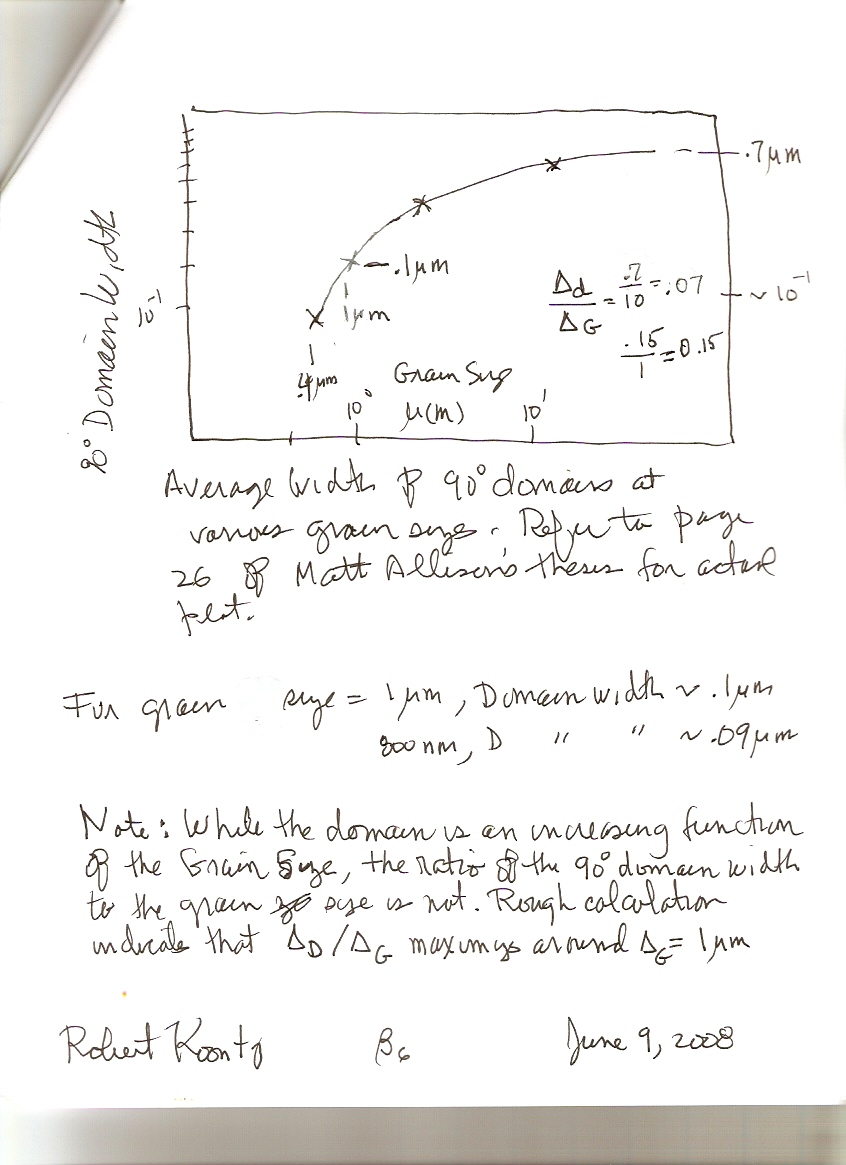 .7μm
90° Domain Width
-.1μm
Δd/ΔG = .7/10 = .07
~ 10⁻¹
10⁻¹
1μm
.15/1 = 0.15
.4μm
Grain Size
10⁰ μ(m) 10¹
Average Width of 90° domains at
various grain sizes. Refer to page
26 of Matt Allison's thesis for actual
plot.
For grain size = 1 μm, Domain width ~ .1μm
800 nm, D " " ~ .09μm
Note: While the domain is an increasing function
of the Grain Size, the ratio of the 90° domain width
to the grain size is not. Rough calculation
indicate that ΔD/ΔG maximizes around ΔG = 1μm
Robert Koontz B6 June 9, 2008